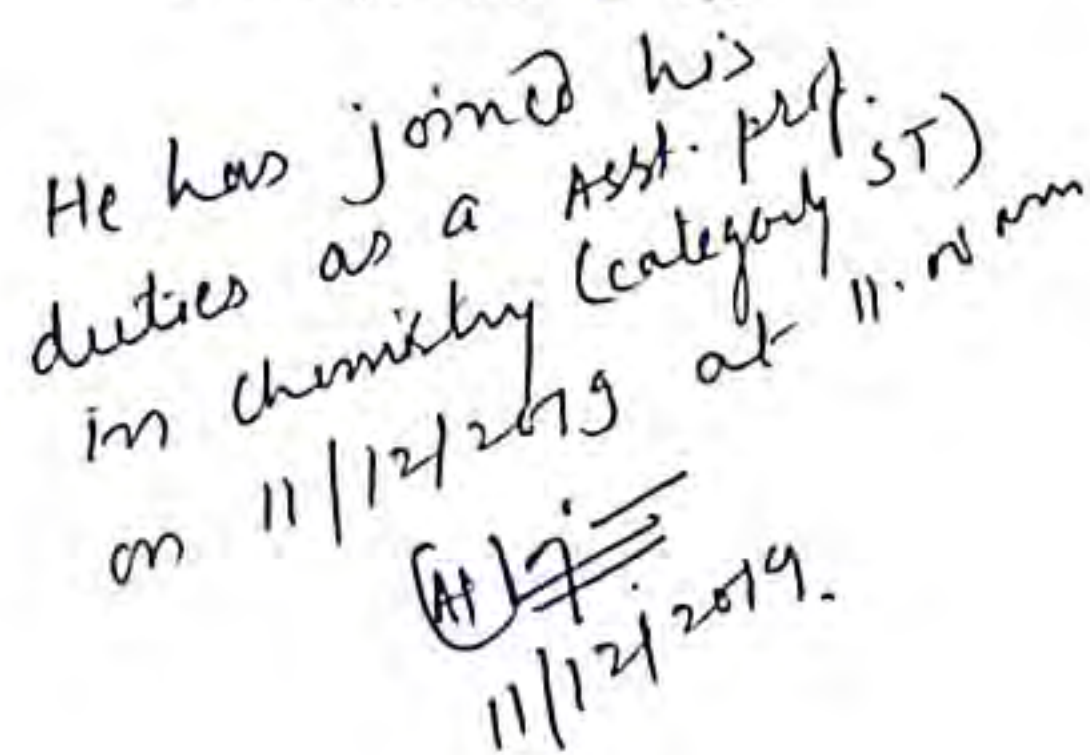 He has joined his
duties as a Asst. prof.
in chemistry (category ST)
on 11/12/2019 at 11.00 am
11/12/2019.